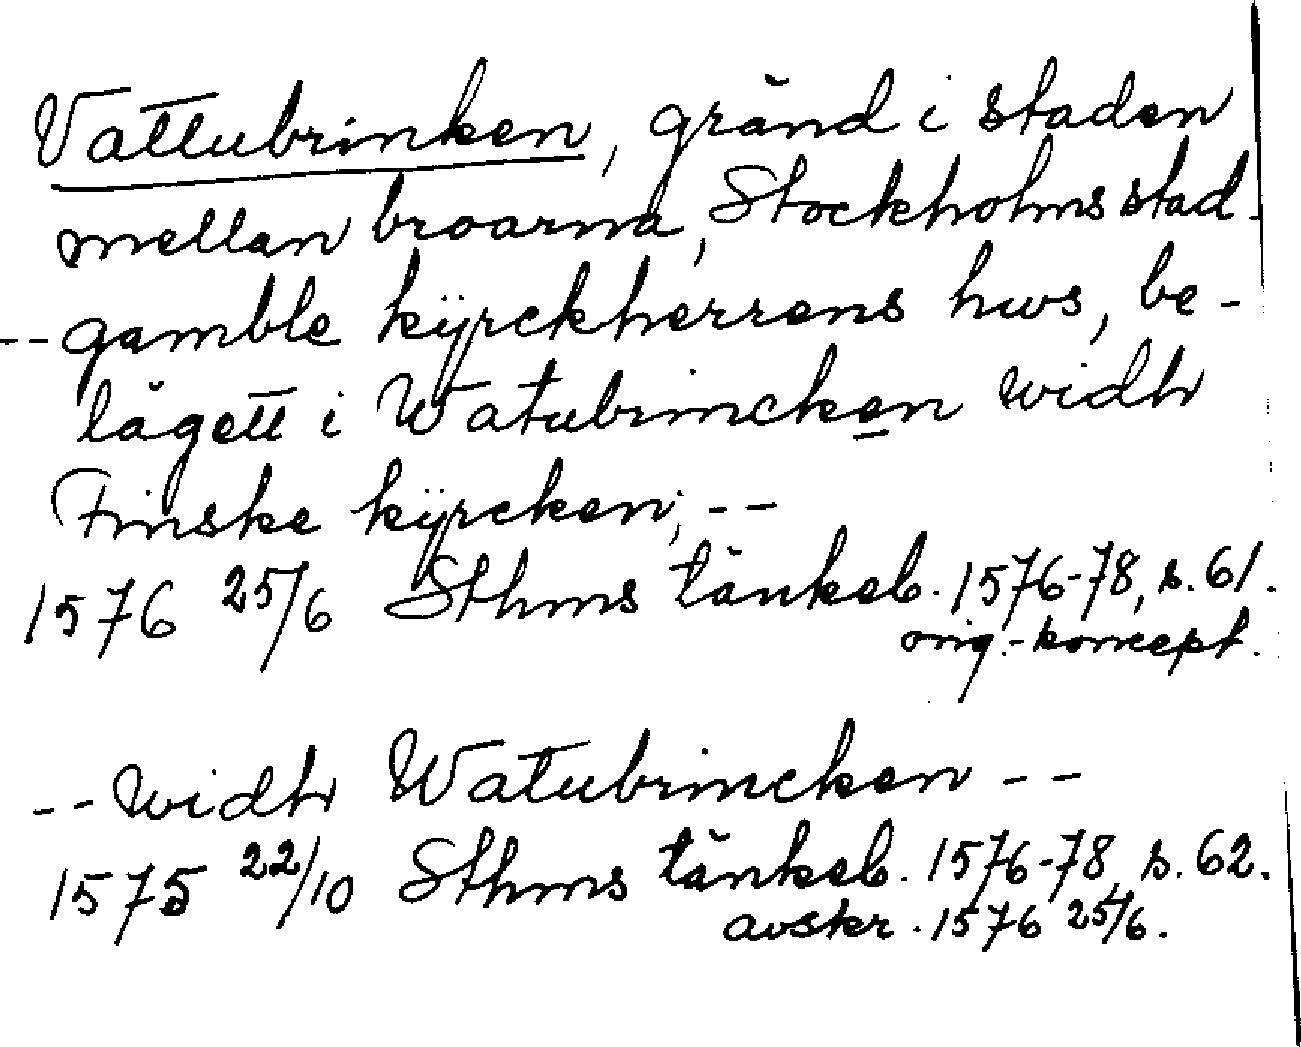 Vattubrinken, gränd i staden
mellan broarna, Stockholms stad.
-- gamble kÿrckherrens hws, be-
lägett i Watubrincken widh
Finske kÿrcken, --
1576 25/6 Sthms tänkeb. 1576-78, s. 61.
orig.-koncept.
-- widh Watubrincken --
1575 22/10 Sthms tänkeb. 1576-78, s. 62.
avskr. 1576 25/6.